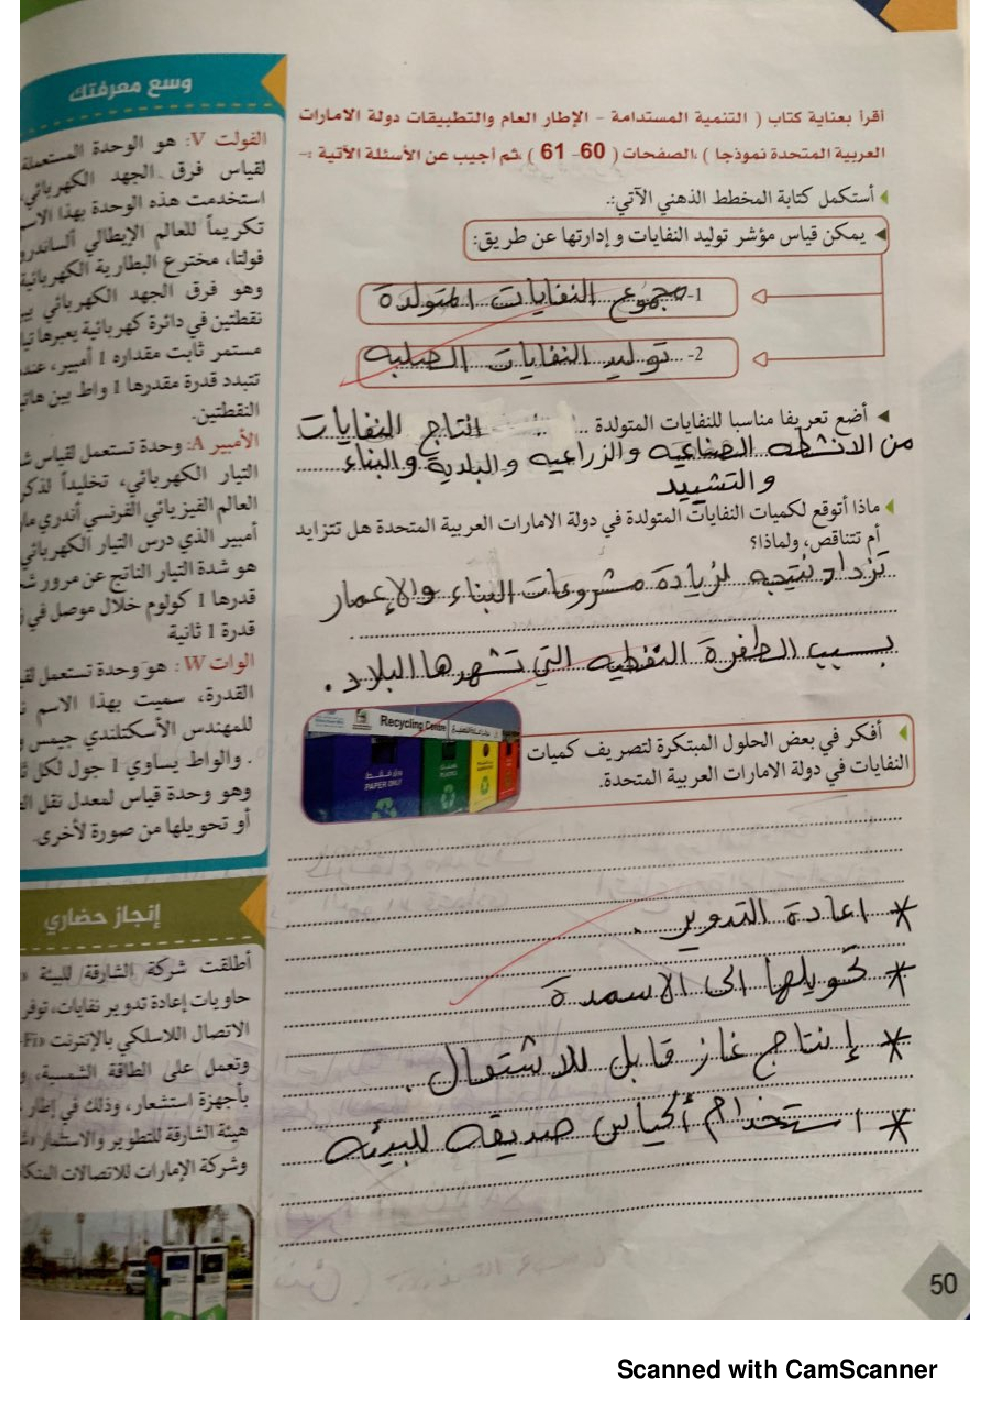 أقرأ بعناية كتاب ( التنمية المستدامة – الإطار العام والتطبيقات دولة الامارات
العربية المتحدة نموذجا ) ،الصفحات ( 60 – 61 ) ثم أجيب عن الأسئلة الآتية :-
أستكمل كتابة المخطط الذهني الآتي:.
يمكن قياس مؤشر توليد النفايات و إدارتها عن طريق:
1- مجموع النفايات المتولدة
2- توليد النفايات الصلبه
أضع تعريفا مناسبا للنفايات المتولدة .. التاج النفايات
من الانشطه الصناعيه والزراعيه والبلدية والبناء
والتشييد
ماذا أتوقع لكميات النفايات المتولدة في دولة الامارات العربية المتحدة هل تتزايد
أم تتناقص، ولماذا؟
تزداد نتيجه لزيادة مشروعات البناء والإعمار
بسبب الطفرة النفطيه التي تشهرها البلاد .
أفكر في بعض الحلول المبتكرة لتصريف كميات
النفايات في دولة الامارات العربية المتحدة.
Recycling Centre
PAPER ONLY
* اعادة التدوير .
* تحويلها الى الاسمدة
* إنتاج غاز قابل للاشتعال .
* استخدام أكياس صديقه للبيئه
وسع معرفتك
الفولت V: هو الوحدة المستعملة
لقياس فرق الجهد الكهربائي،
استخدمت هذه الوحدة بهذا
تكريماً للعالم الإيطالي
فولتا، مخترع البطارية الكهربائية
وهو فرق الجهد الكهربائي
نقطتين في دائرة كهربائية يعبرها
مستمر ثابت مقداره 1 أمبير،
تتبدد قدرة مقدرها 1 واط بين
النقطتين.
الأمبير A: وحدة تستعمل لقياس
التيار الكهربائي، تخليداً
العالم الفيزيائي الفرنسي أندري
أمبير الذي درس التيار الكهربائي
هو شدة التيار الناتج عن مرور
قدرها 1 كولوم خلال موصل في
قدرة 1 ثانية
الوات W: هو وحدة تستعمل
القدرة، سميت بهذا الاسم
للمهندس الأسكتلندي جيمس
. والواط يساوي 1 جول لكل
وهو وحدة قياس لمعدل نقل
أو تحويلها من صورة لأخرى.
إنجاز حضاري
أطلقت شركة الشارقة للبيئة
حاويات إعادة تدوير نفايات،
الاتصال اللاسلكي بالإنترنت
وتعمل على الطاقة الشمسية،
بأجهزة استشعار، وذلك في إطار
هيئة الشارقة للتطوير والاستثمار
وشركة الإمارات للاتصالات
50
Scanned with CamScanner